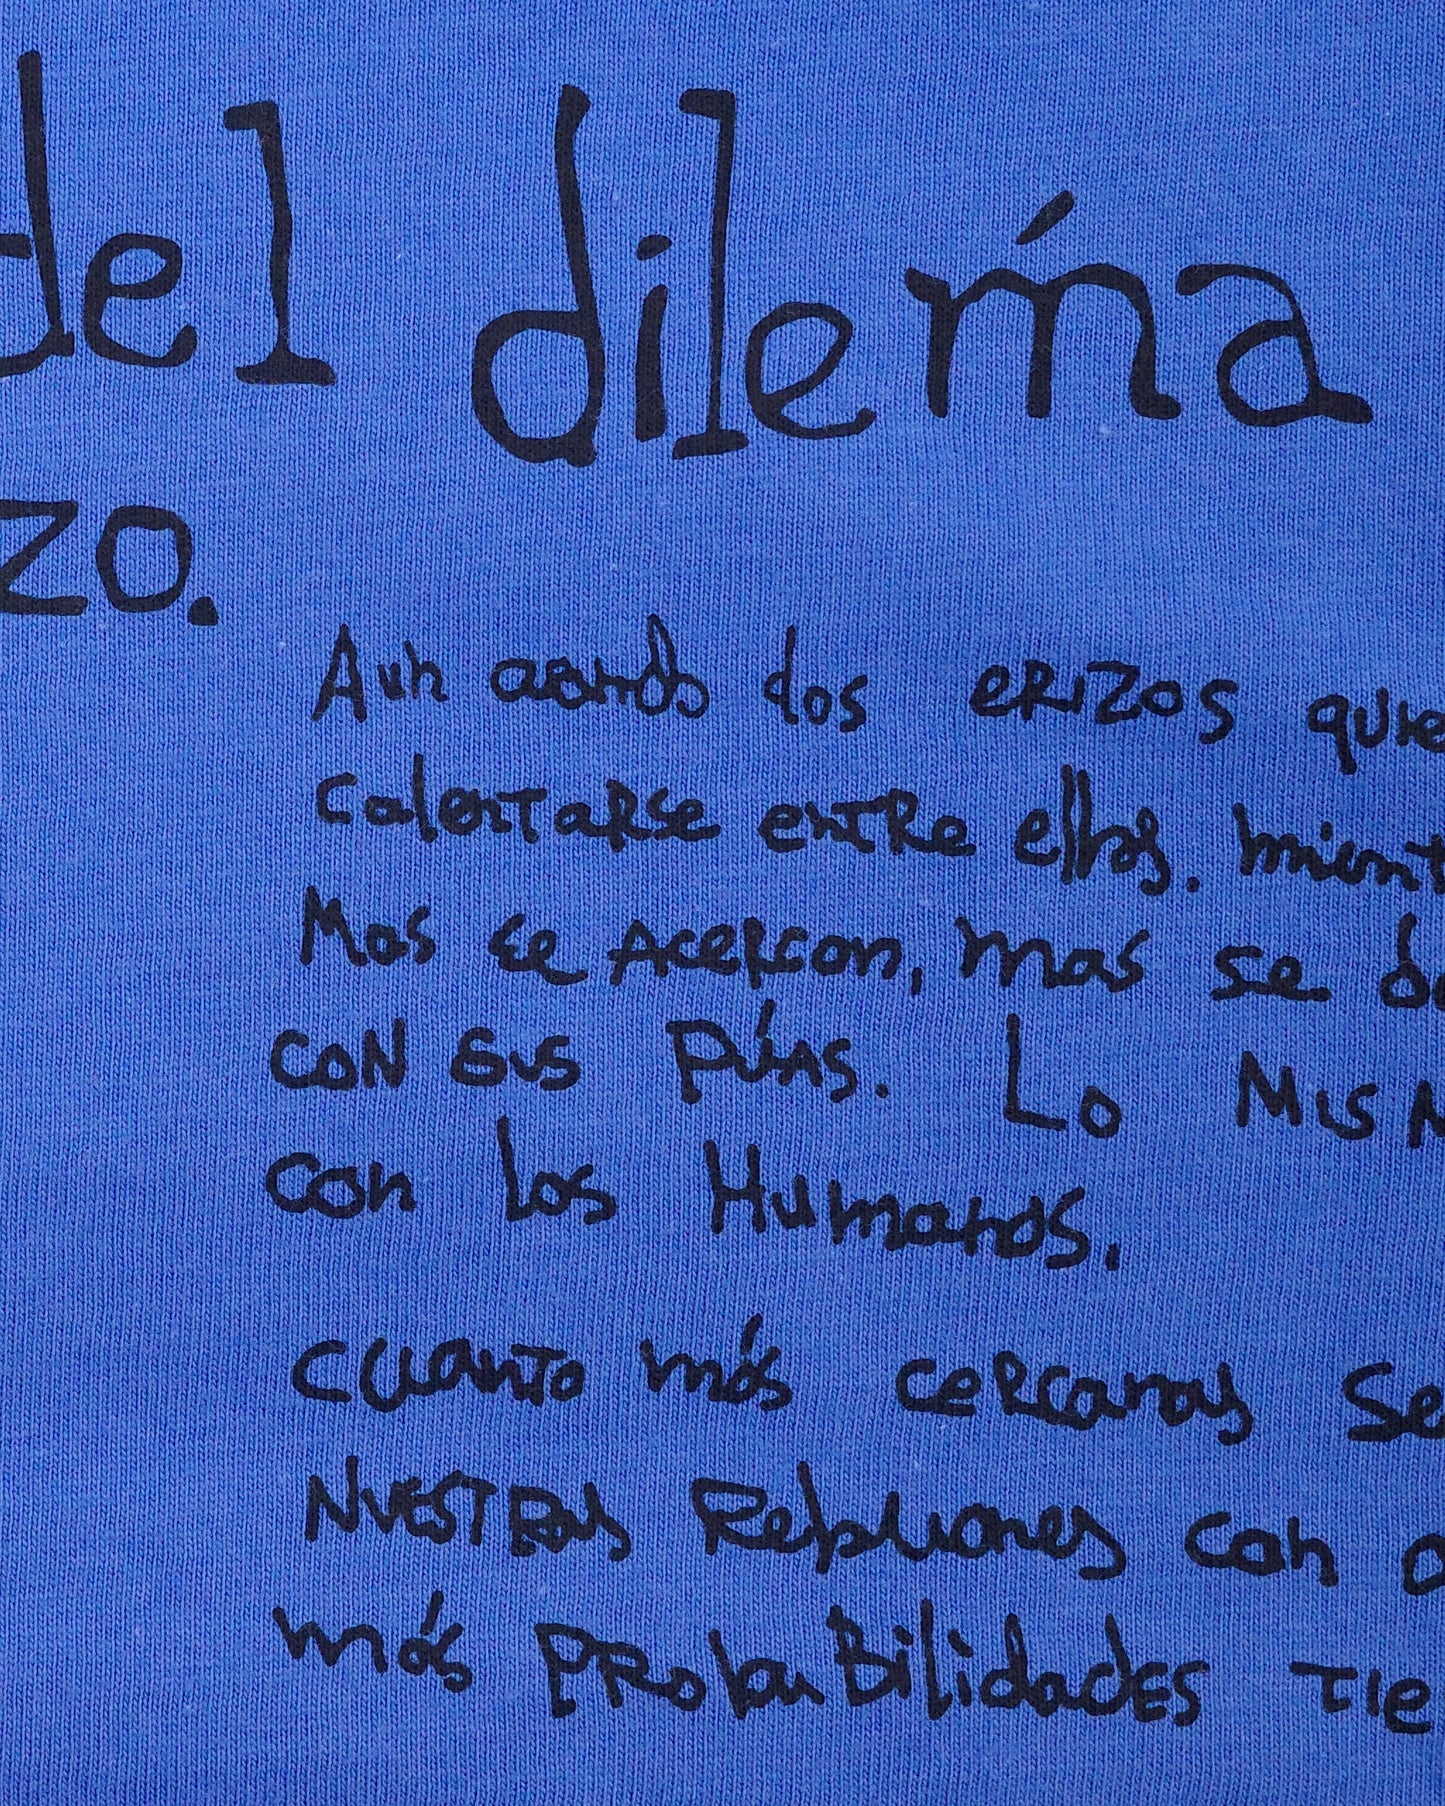 del dileḿa
zo.
Aun cuando dos ERIZOS quie
CalentaRse entRe ellos. mient
Mas se AceRcan, mas se
CON SUS PÚAS. LO MISM
Con los Humanos.
CUanTo más ceRcanas se
NUESTRAS Relaciones con
más PRobabilidadES TIE